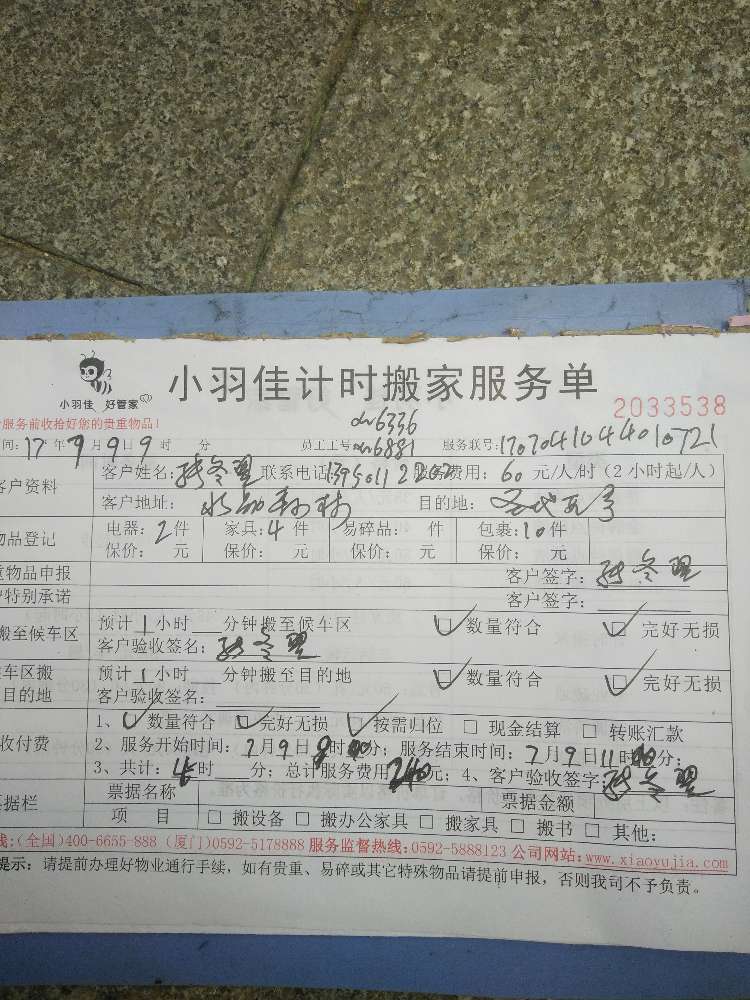 小羽佳 好管家
小羽佳计时搬家服务单
2033538
服务前收给好您的贵重物品!
6336
间: 17年 月9日9时 分 员工工号 6881 服务联号:
客户资料 客户姓名: 联系电话 服务费用: 60 元/人/时 (2小时起/人)
客户地址: 目的地:
物品登记 电器: 2件 家具: 4件 易碎品: 件 包裹: 10件
保价: 元 保价: 元 保价: 元 保价: 元
重物品申报 客户签字:
特别承诺 客户签字:
搬至候车区 预计1小时 分钟搬至候车区 ☑数量符合 ☑完好无损
客户验收签名:
车区搬 预计1小时 分钟搬至目的地 ☑数量符合 ☑完好无损
目的地 客户验收签名:
收付费 1、☑数量符合 ☑完好无损 ☑按需归位 □现金结算 □转账汇款
2、服务开始时间: 7月9日 时 分; 服务结束时间: 7月9日11时 分;
3、共计: 时 分; 总计服务费用240元; 4、客户验收签字
票据栏 票据名称 票据金额
项 目 □搬设备 □搬办公家具 □搬家具 □搬书 □其他:
线:(全国)400-6655-888 (厦门)0592-5178888 服务监督热线:0592-5888123 公司网站:www.xiaoyujia.com
提示: 请提前办理好物业通行手续, 如有贵重、易碎或其它特殊物品请提前申报, 否则我司不予负责。